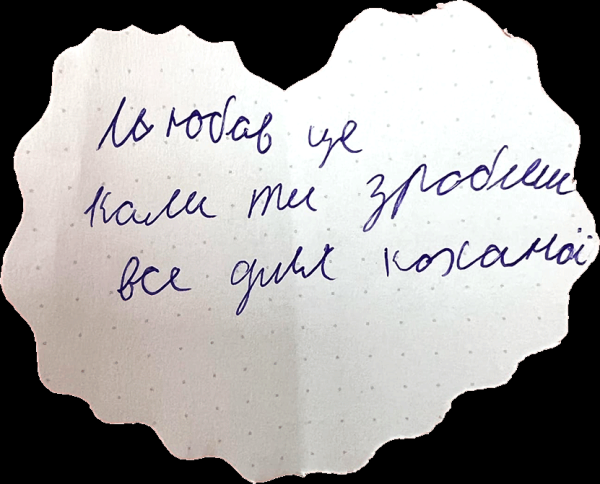 Любав це
кали ти зробиш
все для коханої